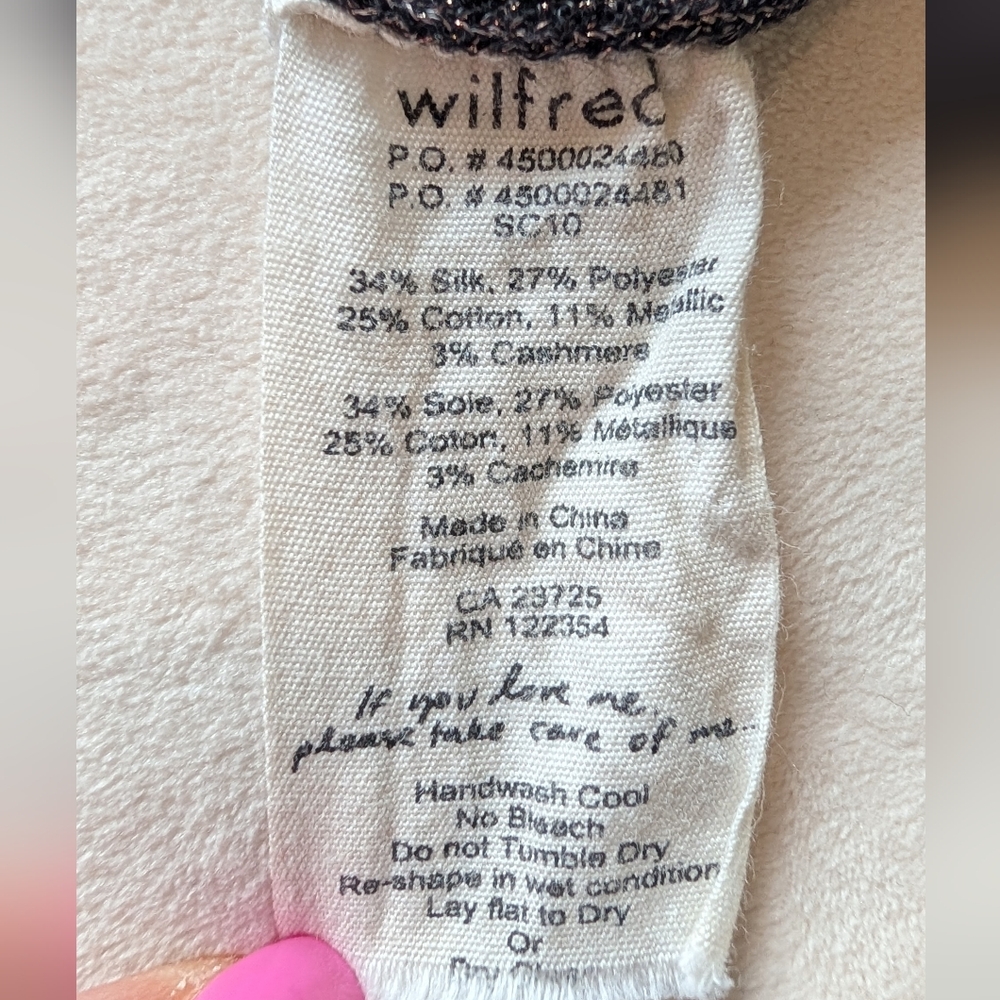 wilfred
P.O. # 4500024480
P.O. # 4500024481
SC10
34% Silk, 27% Polyester
25% Cotton, 11% Metallic
3% Cashmere
34% Soie, 27% Polyester
25% Coton, 11% Métallique
3% Cachemire
Made in China
Fabriqué en Chine
CA 23725
RN 122354
If you love me,
please take care of me...
Handwash Cool
No Bleach
Do not Tumble Dry
Re-shape in wet condition
Lay flat to Dry
Or
Dry